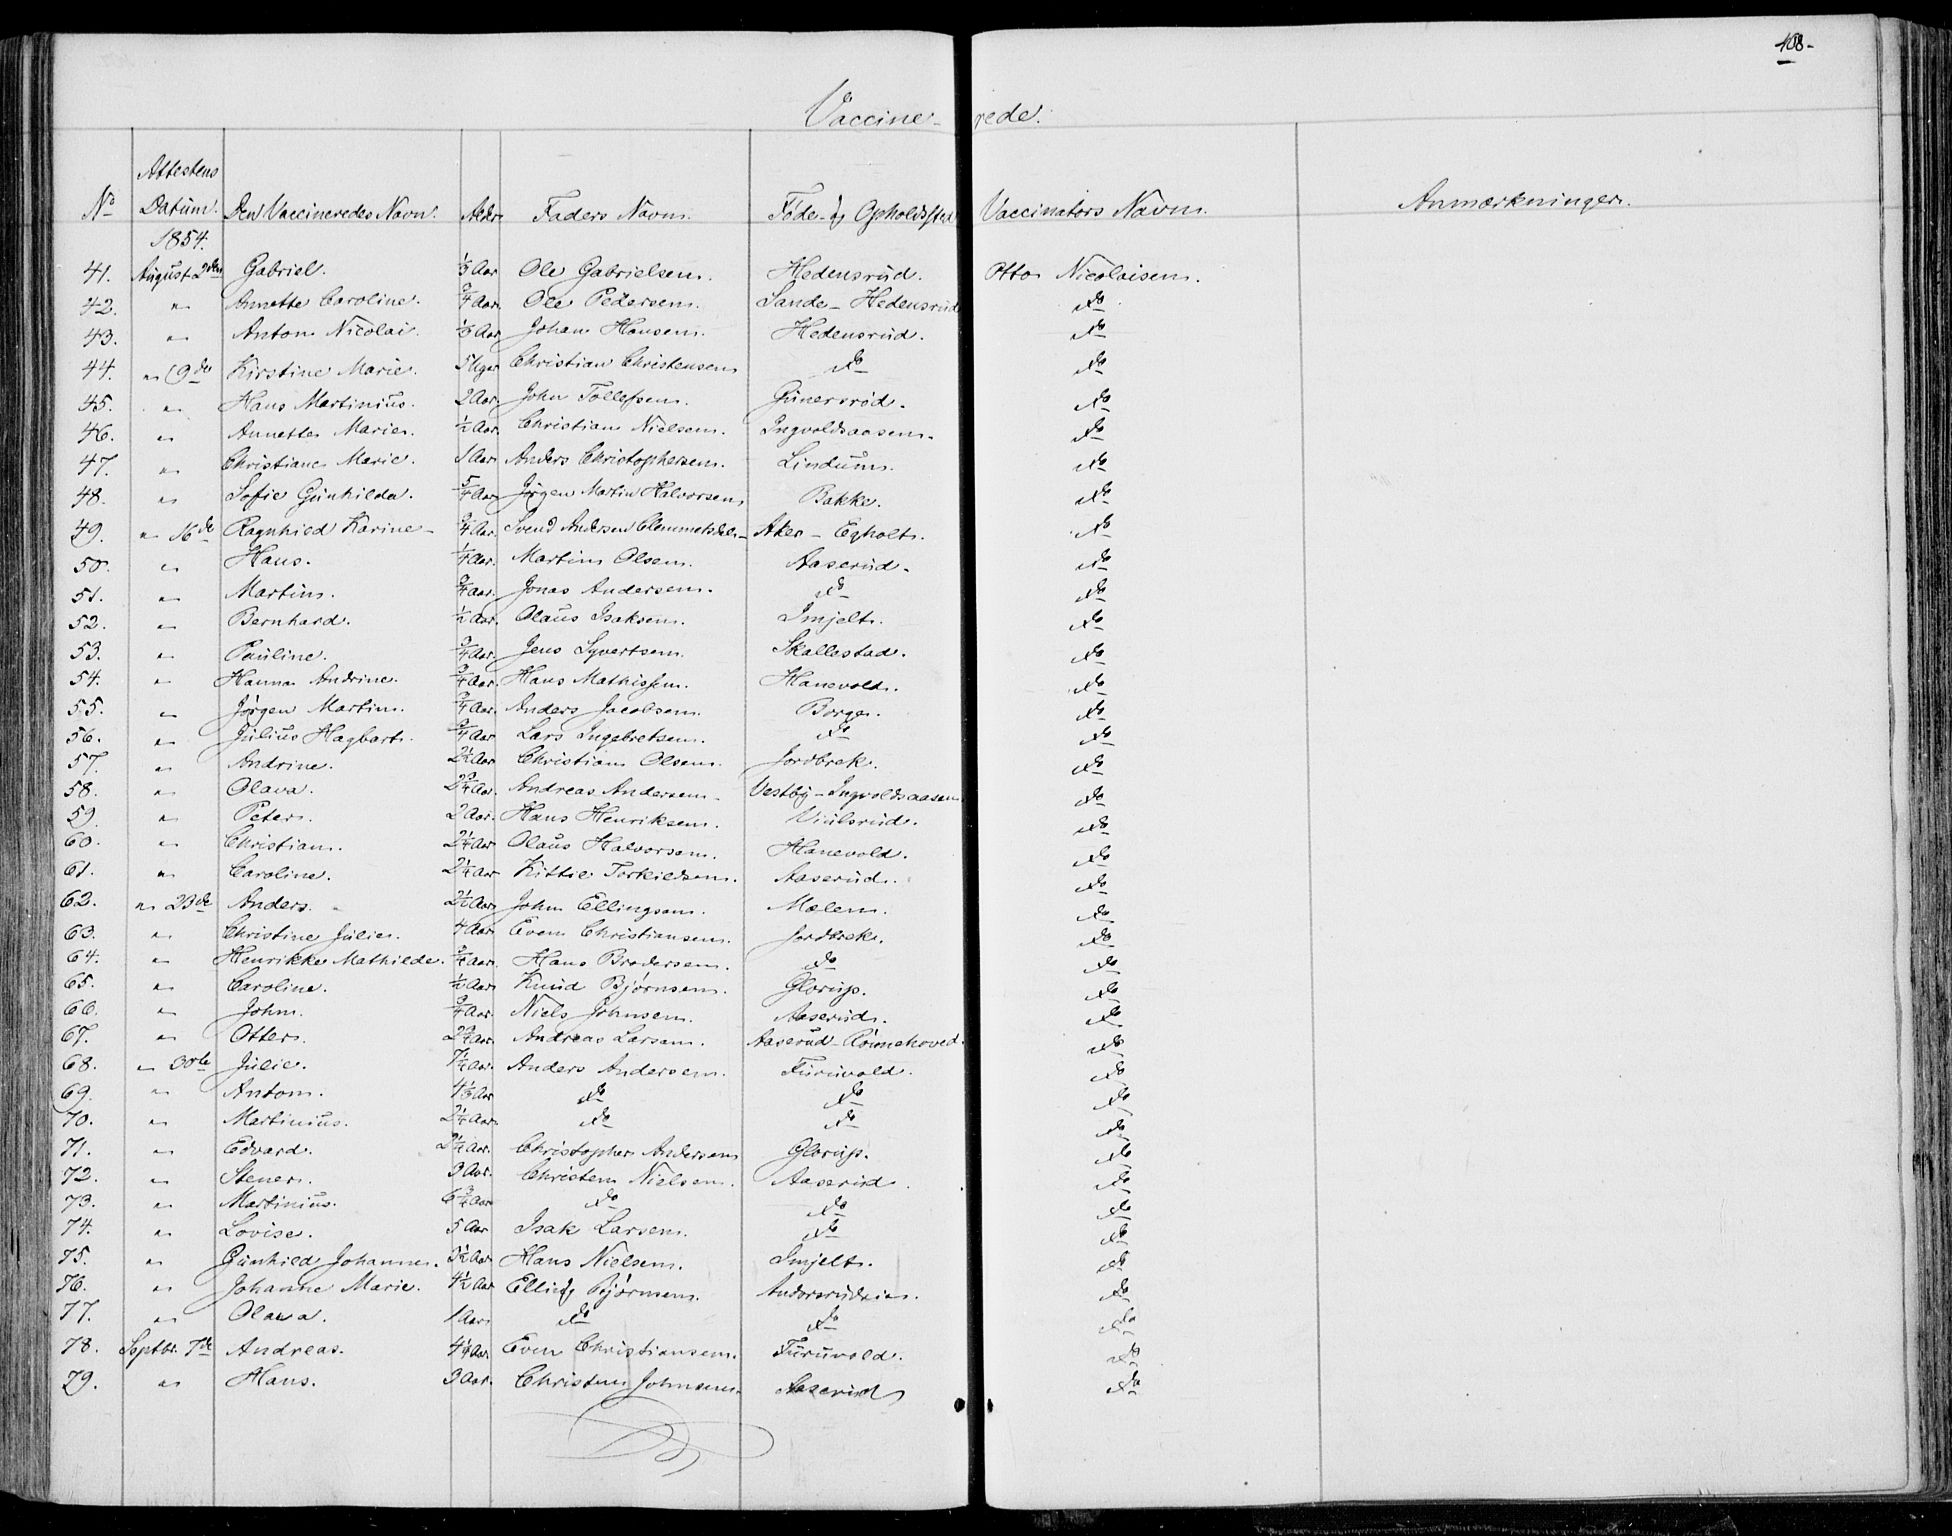 408-
Vaccine- rede.
No Attestens Datum. Den Vaccineredes Navn. Alder Faders Navn. Føde- og Opholdssted Vaccinators Navn. Anmærkninger.
1854.
41. August 2den Gabriel. 1/3 Aar Ole Gabrielsen. Hedensrud. Otto Nicolaisen.
42. " Annette Caroline. 3/4 Aar. Ole Pedersen. Sande - Hedensrud do
43. " Anton Nicolai. 1/3 Aar Johan Hansen. Hedensrud. do
44. " 9de Kirstine Marie. 5 Uger Christian Christensen do do
45. " Hans Martinius. 2 Aar John Tollefsen. Gunersrød. do
46. " Annette Marie. 1/2 Aar. Christian Nielsen. Ingvoldsaasen. do
47. " Christiane Marie. 1 Aar Anders Christophersen. Lindum. do
48. " Sofie Gunhilda. 5/4 Aar Jørgen Martin Halvorsen, Bakke. do
49. " 16de Ragnhild Karine 3/4 Aar. Svend Andersen Clemmetsdal Aker - Egholt. do
50. " Hans. 1/4 Aar. Martin Olsen. Aaserud. do
51. " Martin. 3/4 Aar. Jonas Andersen. do do
52. " Bernhard. 1/2 Aar. Olaus Isaksen. Imjelt. do
53. " Pauline. 3/4 Aar. Jens Syvertsen. Skallestad. do
54. " Hanna Andrine. 3/4 Aar. Hans Mathissen. Hanevold. do
55. " Jørgen Martin. 3/4 Aar. Anders Jacobsen. Borge. do
56. " Julius Hagbart. 3/4 Aar Lars Ingebretsen. do do
57. " Andrine. 2 1/2 Aar Christian Olsen. Jordbrek. do
58. " Olava. 2 3/4 Aar. Andreas Andersen. Vestby - Ingvoldsaasen do
59. " Peter. 2 Aar. Hans Henriksen. Viulsrud. do
60. " Christian. 2 1/4 Aar Olaus Halvorsen. Hanevold. do
61. " Caroline. 2 1/4 Aar Kittil Torkildsen. Aaserud. do
62. " 23de Anders. 2 1/2 Aar John Ellingsen. Mælen. do
63. " Christine Julie. 4 Aar Even Christiansen. Jordbrek. do
64. " Henrikke Mathilde. 3/4 Aar. Hans Brodersen. do do
65. " Caroline. 1/2 Aar Knud Bjørnsen. Glorup. do
66. " John. 3/4 Aar. Niels Johnsen. Aaserud. do
67. " Otter. 2 3/4 Aar. Andreas Larsen. Aaserud - Rønnehoved. do
68. " 30te Julie. 7 1/2 Aar. Anders Andersen. Furuvold. do
69. " Anton. 4 1/3 Aar do do do
70. " Martinius. 2 1/4 Aar. do do do
71. " Edvard. 2 1/2 Aar. Christopher Andersen Glorup. do
72. " Stener. 3 Aar. Christen Nielsen. Aaserud. do
73. " Martinius. 6 3/4 Aar do do do
74. " Lovise. 5 Aar Isak Larsen. do do
75. " Gunhild Johanne. 3 1/2 Aar Hans Nielsen. Imjelt. do
76. " Johanne Marie. 4 1/2 Aar Elling Bjørnsen. Andorsrudeie. do
77. " Olava. 1 Aar do do do
78. Septbr. 7de Andreas. 4 1/4 Aar. Even Christiansen. Furuvold. do
79. " Hans. 3 Aar. Christen Johnsen. Aaserud do